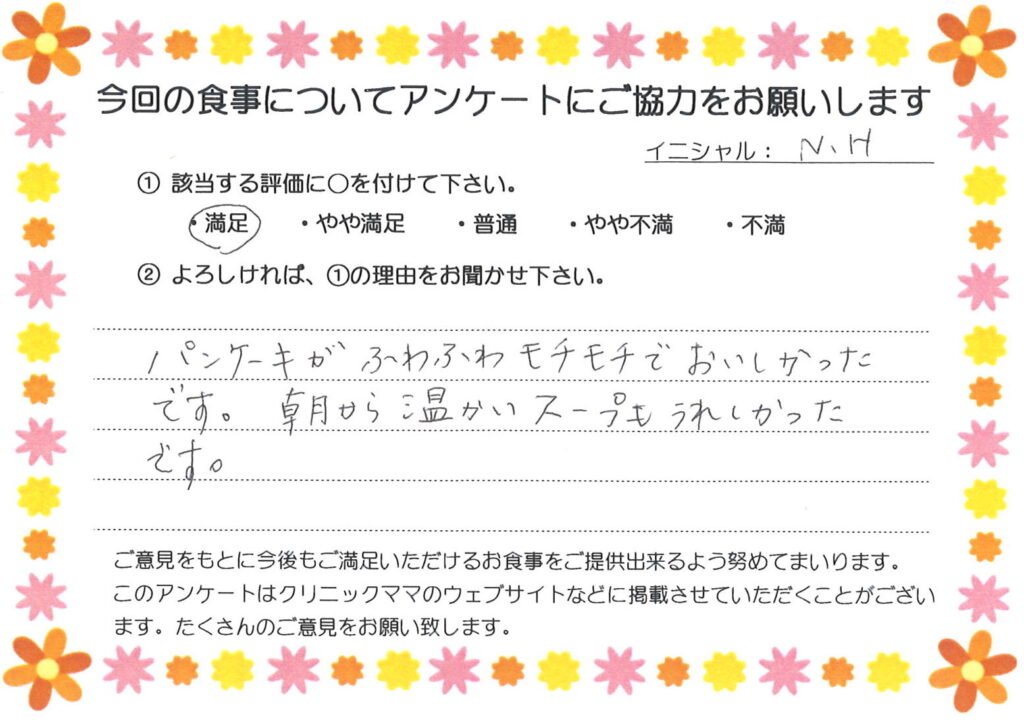 今回の食事についてアンケートにご協力をお願いします
イニシャル： N.H
① 該当する評価に○を付けて下さい。
・満足 ・やや満足 ・普通 ・やや不満 ・不満
② よろしければ、①の理由をお聞かせ下さい。
パンケーキが ふわふわ モチモチで おいしかった
です。 朝から 温かい スープも うれしかった
です。
ご意見をもとに今後もご満足いただけるお食事をご提供出来るよう努めてまいります。
このアンケートはクリニックママのウェブサイトなどに掲載させていただくことがござい
ます。たくさんのご意見をお願い致します。